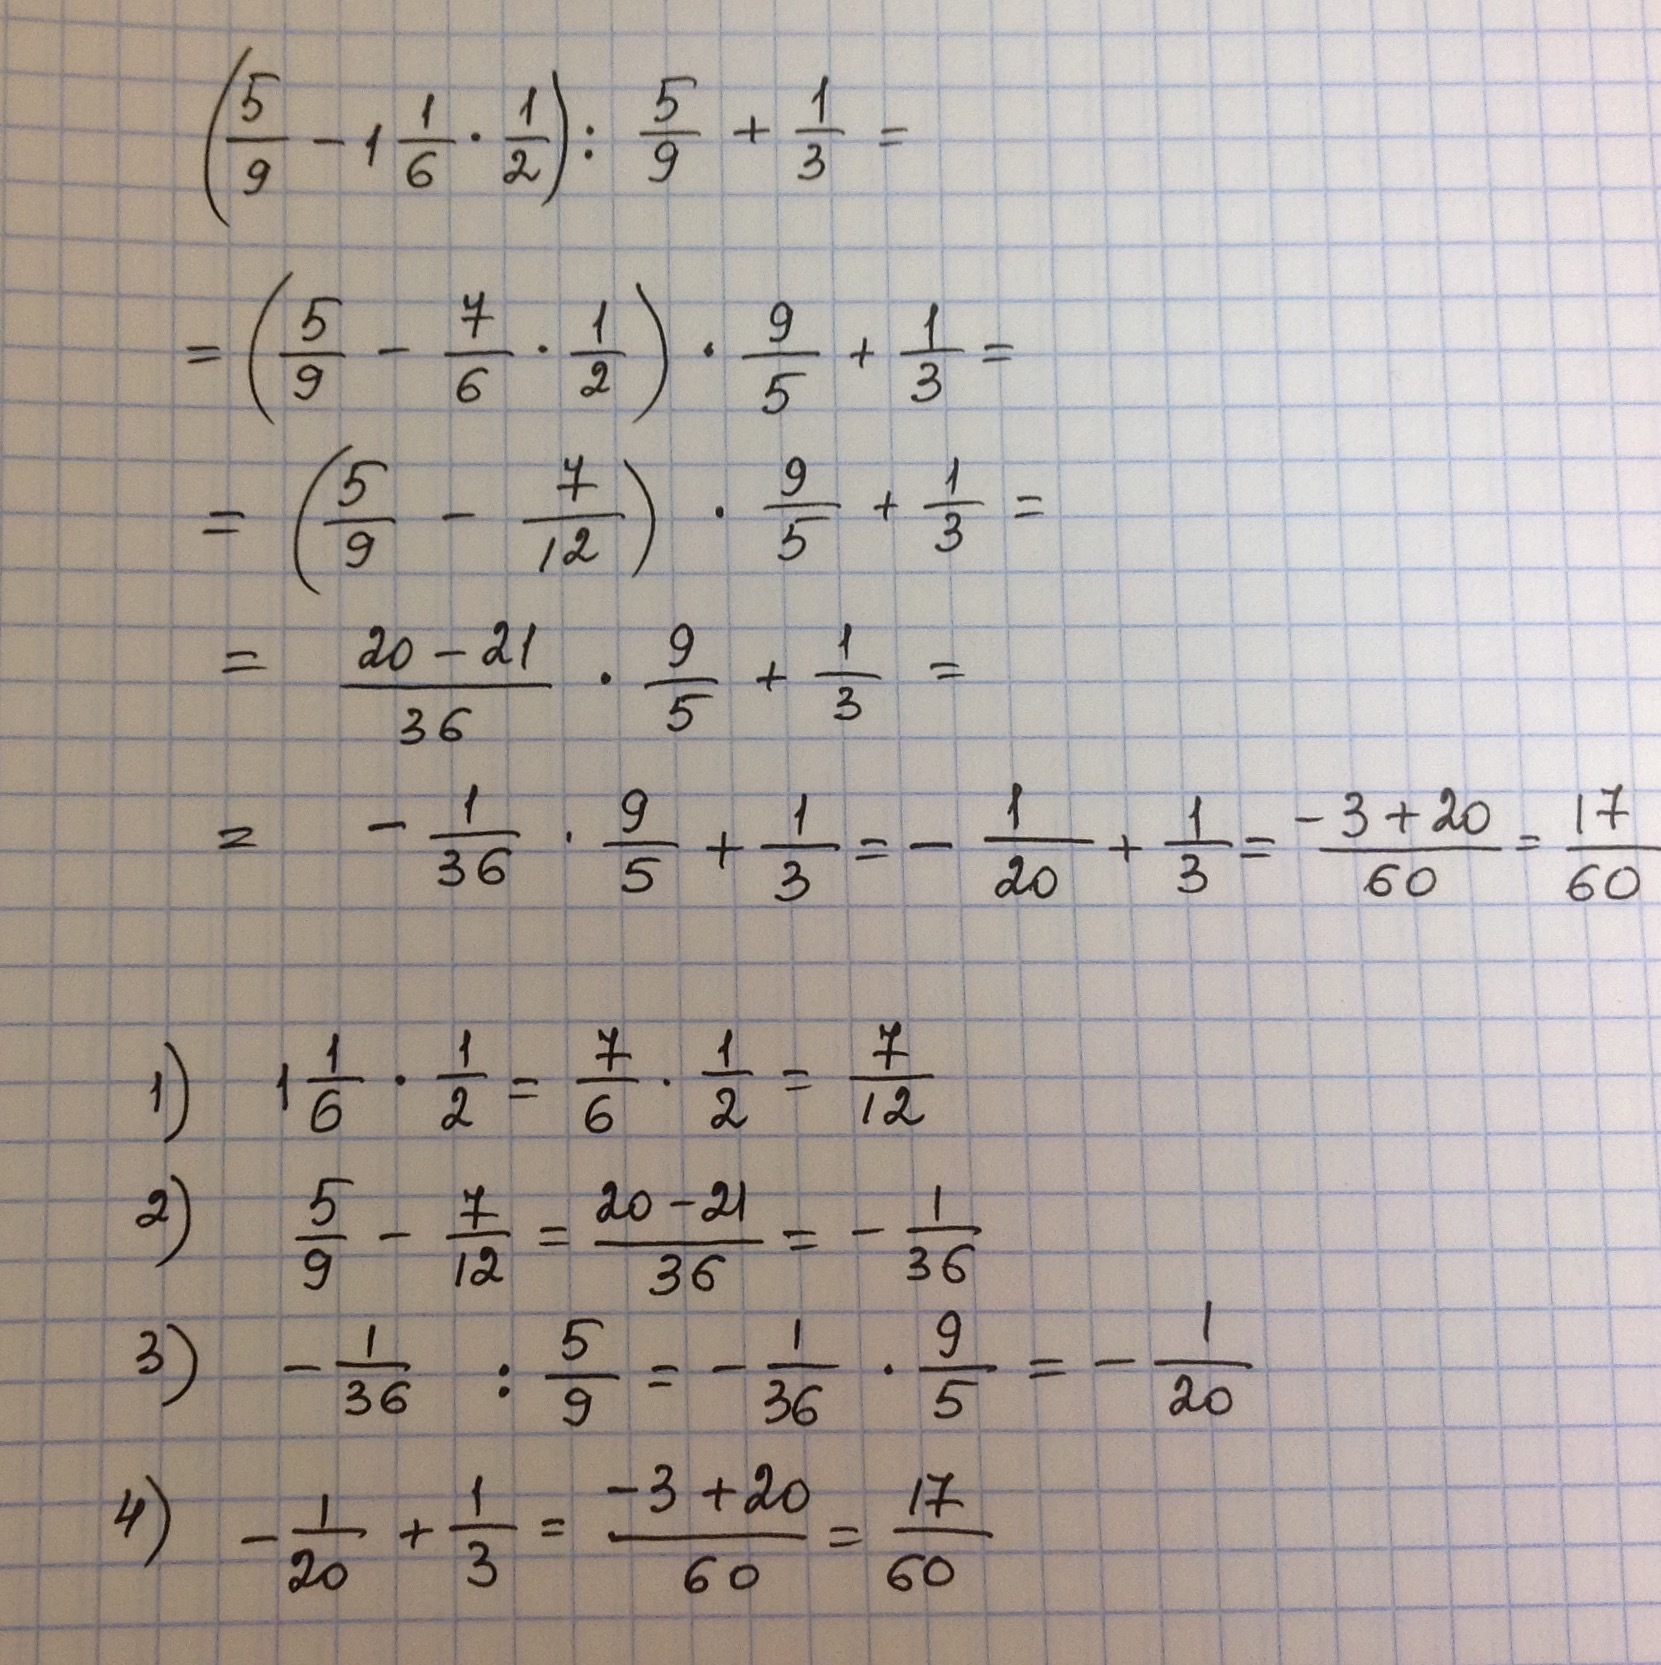 (5/9 - 1 1/6 · 1/2) : 5/9 + 1/3 =
= (5/9 - 7/6 · 1/2) · 9/5 + 1/3 =
= (5/9 - 7/12) · 9/5 + 1/3 =
= (20 - 21)/36 · 9/5 + 1/3 =
= - 1/36 · 9/5 + 1/3 = - 1/20 + 1/3 = (-3 + 20)/60 = 17/60
1) 1 1/6 · 1/2 = 7/6 · 1/2 = 7/12
2) 5/9 - 7/12 = (20 - 21)/36 = - 1/36
3) - 1/36 : 5/9 = - 1/36 · 9/5 = - 1/20
4) - 1/20 + 1/3 = (-3 + 20)/60 = 17/60